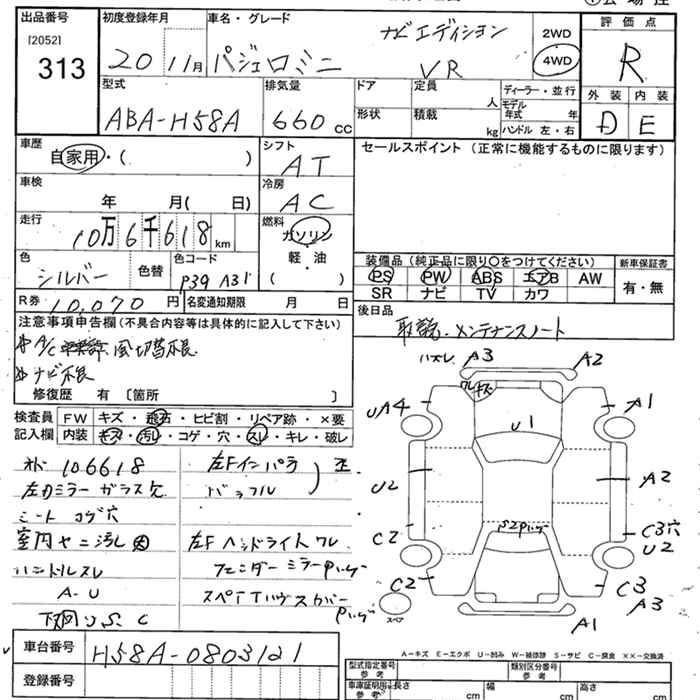 出品番号
[2052]
313
初度登録年月
20 11月
車名・グレード
パジェロミニ
ナビエディション
VR
2WD
4WD
評価点
R
外装 内装
D E
型式
ABA-H58A
排気量
660 cc
ドア
形状
定員
人
積載
kg
ディーラー・並行
モデル年式 年
ハンドル 左・右
車歴
自家用・( )
シフト
AT
セールスポイント (正常に機能するものに限ります)
車検
年 月( 日)
冷房
AC
走行
10万6千618 km
燃料
ガソリン
軽・油
( )
色
シルバー
色替
色コード
P39 A31
装備品 (純正品に限り○をつけてください)
PS PW ABS エアB AW
SR ナビ TV カワ
新車保証書
有・無
R券 10,070 円
名変通知期限 月 日
後日品
取説・メンテナンスノート
注意事項申告欄 (不具合内容等は具体的に記入して下さい)
ナビ不良
修復歴 有 〔箇所 〕
検査員
記入欄
FW キズ・飛石・ヒビ割・リペア跡・×要
内装 キズ・汚レ・コゲ・穴・スレ・キレ・破レ
106618
左Fインパラ
左ドアミラーガラス欠
バッフル
シート コゲ穴
室内ヤニ汚レ 大
左Fヘッドライトワレ
ハンドルスレ
フェンダーミラー
A-U
スペアTハウスカバー
下廻りS. C
ハズレ A3 A2
ワレキズ
UA4 A1
U1
U2 A2
C2 C3穴
U2
C2 C3
A3
スペア
A1
A-キズ E-エクボ U-凹み W-補修跡 S-サビ C-腐食 XX-交換済
車台番号
H58A-0803121
登録番号
型式指定番号
参考
類別区分番号
参考
車庫証明用
参考
長さ cm
幅 cm
高さ cm